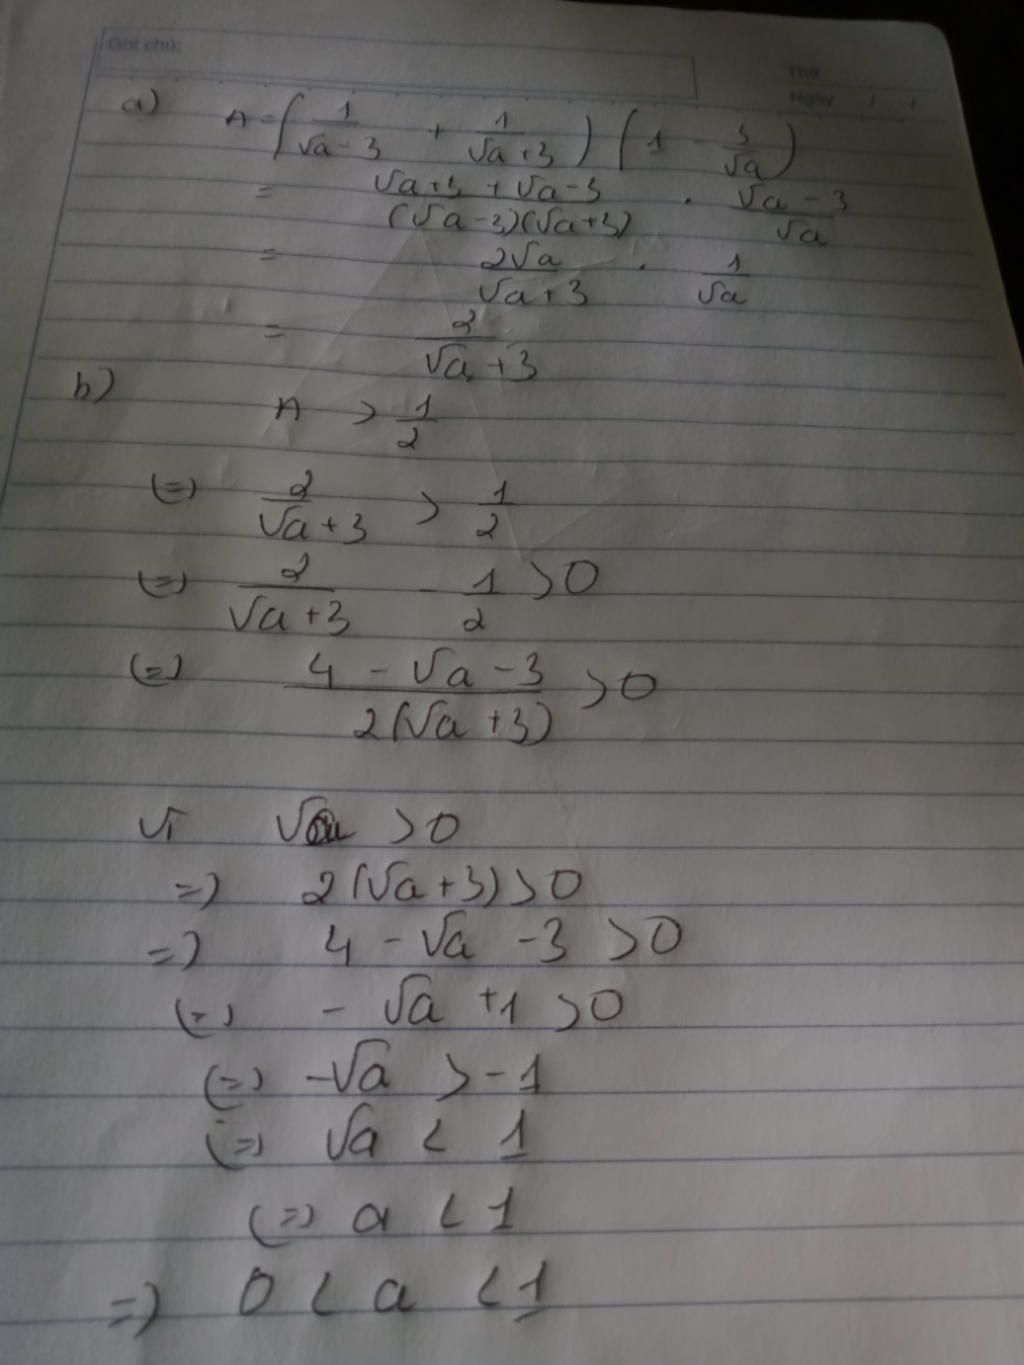 Ghi chú:
Thứ
Ngày / /
a) A = (1/(√a - 3) + 1/(√a + 3)) (1 - 3/√a)
= (√a + 3 + √a - 3)/((√a - 3)(√a + 3)) . (√a - 3)/√a
= 2√a/(√a + 3) . 1/√a
= 2/(√a + 3)
b) A > 1/2
(=) 2/(√a + 3) > 1/2
(=) 2/(√a + 3) - 1/2 > 0
(=) (4 - √a - 3)/(2(√a + 3)) > 0
Vì √a > 0
=) 2(√a + 3) > 0
=) 4 - √a - 3 > 0
(=) - √a + 1 > 0
(=) -√a > -1
(=) √a < 1
(=) a < 1
=) 0 < a < 1